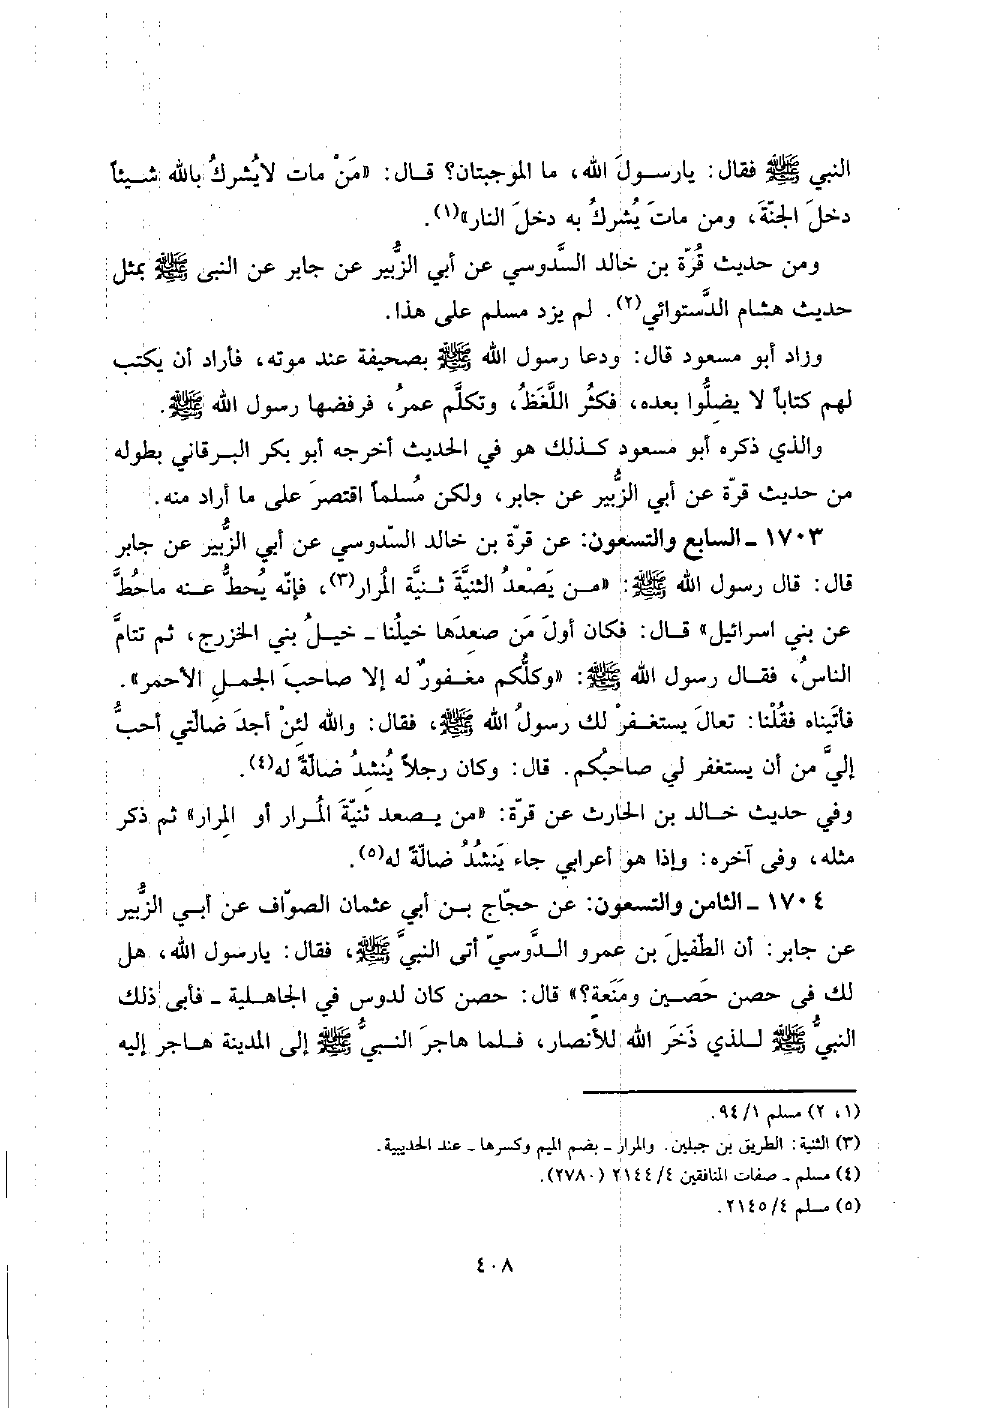 النبي ﷺ فقال: يارسولَ الله، ما الموجبتان؟ قال: «مَنْ مات لايُشركُ بالله شيئاً
دخلَ الجنّةَ، ومن ماتَ يُشركُ به دخلَ النار»(١).
ومن حديث قُرّة بن خالد السَّدوسي عن أبي الزُّبير عن جابر عن النبى ﷺ بمثل
حديث هشام الدَّستوائي(٢). لم يزد مسلم على هذا.
وزاد أبو مسعود قال: ودعا رسول الله ﷺ بصحيفة عند موته، فأراد أن يكتب
لهم كتاباً لا يضِلُّوا بعده، فكثُر اللَّغَطُ، وتكلَّم عمرُ، فرفضها رسول الله ﷺ.
والذي ذكره أبو مسعود كذلك هو في الحديث أخرجه أبو بكر البرقاني بطوله
من حديث قرّة عن أبي الزُّبير عن جابر، ولكن مُسلماً اقتصرَ على ما أراد منه.
١٧٠٣ ـ السابع والتسعون: عن قرّة بن خالد السّدوسي عن أبي الزُّبير عن جابر
قال: قال رسول الله ﷺ: «من يَصْعدُ الثنيَّةَ ثنيَّة المُرار(٣)، فإنّه يُحطُّ عنه ماحُطَّ
عن بني اسرائيل» قال: فكان أولَ مَن صعِدَها خيلُنا ـ خيلُ بني الخزرج، ثم تتامَّ
الناسُ، فقال رسول الله ﷺ: «وكلُّكم مغفورٌ له إلا صاحبَ الجملِ الأحمر».
فأتيناه فقُلْنا: تعالَ يستغفرْ لك رسولُ الله ﷺ، فقال: والله لئنْ أجدَ ضالّتي أحبُّ
إليَّ من أن يستغفر لي صاحبُكم. قال: وكان رجلاً يُنشِدُ ضالّةً له(٤).
وفي حديث خالد بن الحارث عن قرّة: «من يصعد ثنيّةَ المُرار أو المِرار» ثم ذكر
مثله، وفى آخره: وإذا هو أعرابي جاء يَنشُدُ ضالّةً له(٥).
١٧٠٤ ـ الثامن والتسعون: عن حجّاج بن أبي عثمان الصوّاف عن أبي الزُّبير
عن جابر: أن الطّفيلَ بن عمرو الدَّوسيّ أتى النبيَّ ﷺ، فقال: يارسول الله، هل
لك فى حصن حَصين ومَنَعةٍ؟» قال: حصن كان لدوس في الجاهلية ـ فأبى ذلك
النبيُّ ﷺ للذي ذَخَرَ الله للأنصار، فلما هاجرَ النبيُّ ﷺ إلى المدينة هاجر إليه
(١، ٢) مسلم ١/ ٩٤.
(٣) الثنية: الطريق بن جبلين. والمرار ـ بضم الميم وكسرها ـ عند الحديبية.
(٤) مسلم ـ صفات المنافقين ٤/ ٢١٤٤ (٢٧٨٠).
(٥) مسلم ٤/ ٢١٤٥.
٤٠٨